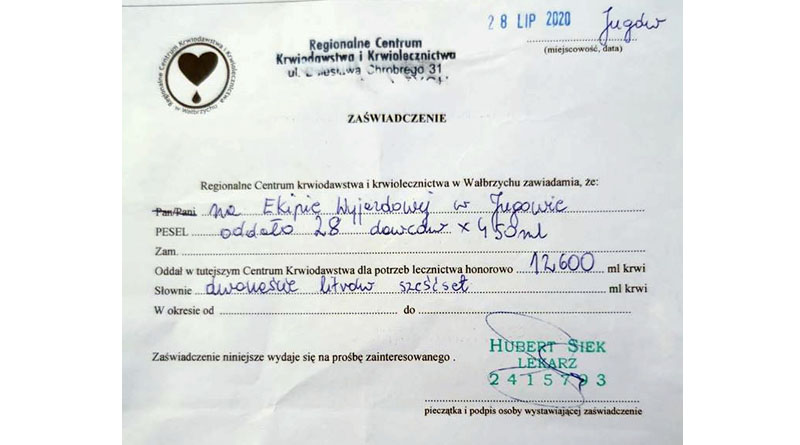 28 LIP 2020 Jugów
(miejscowość, data)
Regionalne Centrum Krwiodawstwa i Krwiolecznictwa
w Wałbrzychu
Regionalne Centrum
Krwiodawstwa i Krwiolecznictwa
ul. Chrobrego 31
ZAŚWIADCZENIE
Regionalne Centrum krwiodawstwa i krwiolecznictwa w Wałbrzychu zawiadamia, że:
Pan/Pani na Ekipie Wyjazdowej w Jugowie
PESEL oddało 28 dawców x 450ml
Zam.
Oddał w tutejszym Centrum Krwiodawstwa dla potrzeb lecznictwa honorowo 12600 ml krwi
Słownie dwanaście litrów sześćset ml krwi
W okresie od do
Zaświadczenie niniejsze wydaje się na prośbę zainteresowanego .
HUBERT SIEK
LEKARZ
2415793
pieczątka i podpis osoby wystawiającej zaświadczenie